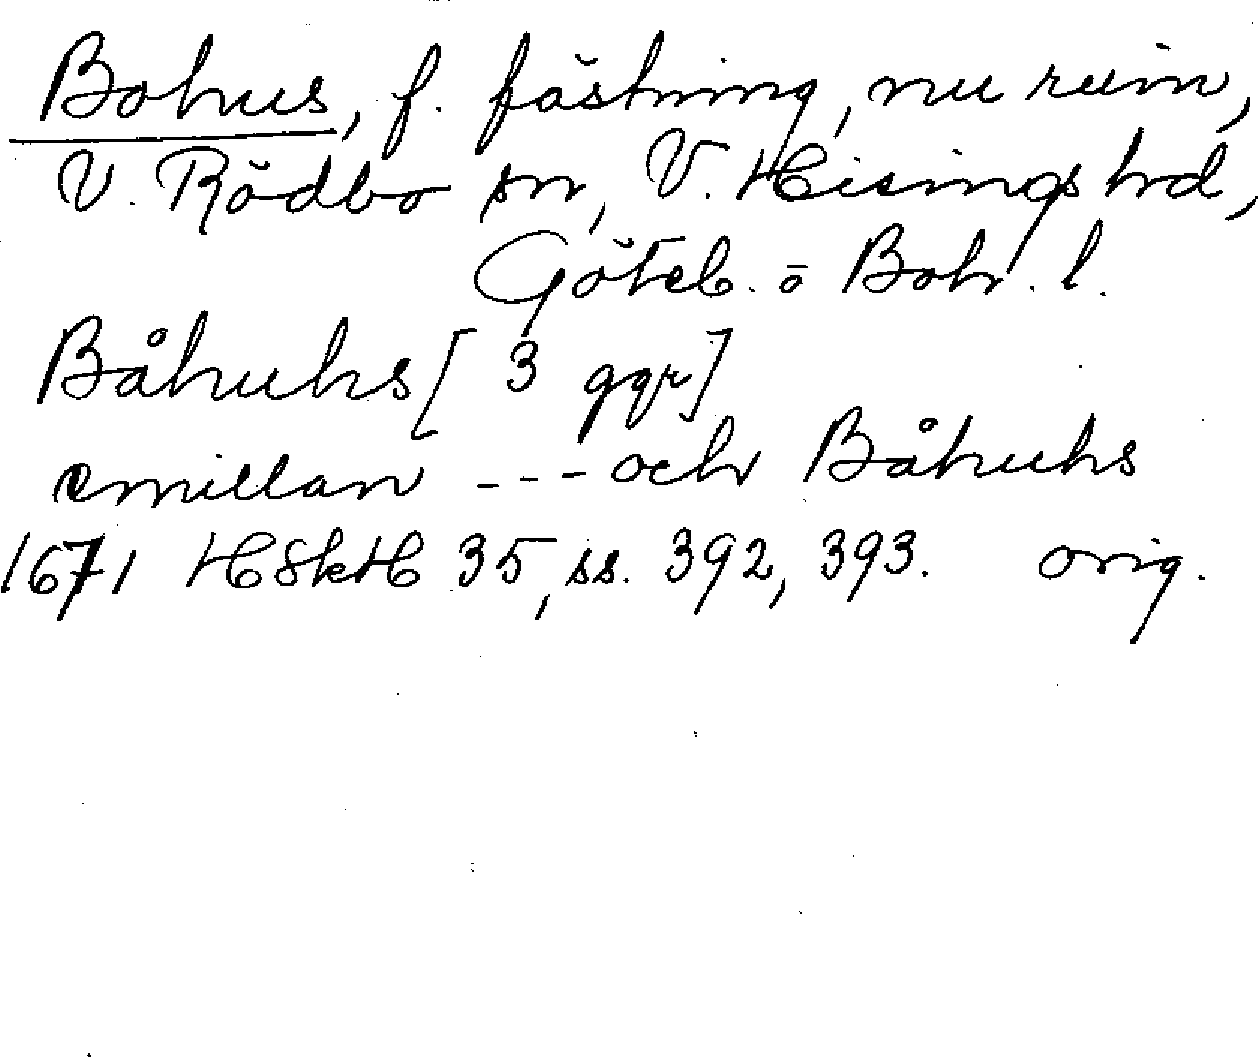 Bohus, f. fästning, nu ruin,
V. Rödbo sn, V. Hisings hrd,
Göteb. o Boh. l.
Båhuhs [3 ggr]
emillan --- och Båhuhs
1671 HSkH 35, ss. 392, 393. orig.